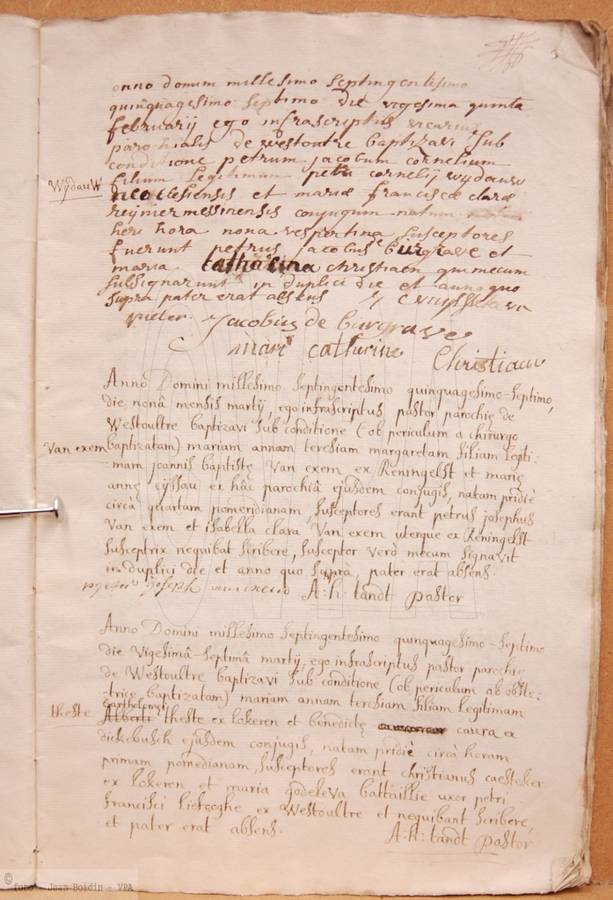 anno domini millesimo septingentesimo
quinquagesimo septimo die vigesima quinta
februarij ego infrascriptus vicarius
parochialis de westoutre baptizavi sub
conditione petrum jacobum cornelium
Wijdauw filium legitimum petri cornelij wydauw
neoclesiensis et mariæ franciscæ claræ
reijner messinensis conjugum natum
heri hora nona vespertina susceptores
fuerunt petrus jacobus burgrave et
maria catharina christiaen qui mecum
subsignarunt in duplici die et anno quo
supra pater erat absens
pieter Jacobus de burgrave
mari catherine Christiaen
Anno Domini millesimo septingentesimo quinquagesimo-septimo,
die nonâ mensis martij, ego infrascriptus pastor parochiæ de
Westoultre baptizavi sub conditione (ob periculum a chirurgo
Van exem baptizatam) mariam annam teresiam margaretam filiam legiti:
mam joannis baptistę Van exem ex Reningelst et marię
annę cijssau ex hac parochiâ ejusdem conjugis, natam pridiè
circà quartam pomeridianam, susceptores erant petrus josephus
Van exem et isabella clara Van exem uterque ex Reningelst
susceptrix nequibat scribere, susceptor verò mecum signavit
in duplici die et anno quo supra, pater erat absens.
joseph A: h: tandt pastor
Anno Domini millesimo septingentesimo quinquagesimo-septimo
die Vigesimâ-septimâ martij, ego infrascriptus pastor parochię
de Westoultre baptizavi sub conditione (ob periculum ab obste:
trice baptizatam) mariam annam teresiam filiam legitimam
bartholomęi
theste Alberti theste ex lokeren et benedictę caura ex
dickebusch ejusdem conjugis, natam pridiè circà horam
primam pomedianam, susceptores erant christianus caesteker
ex lokeren et maria godeleva battaillie uxor petri
francisci liefooghe ex Westoultre et nequibant scribere,
et pater erat absens.
A: h: tandt pastor
© foto - Jean-Boidin - VPA